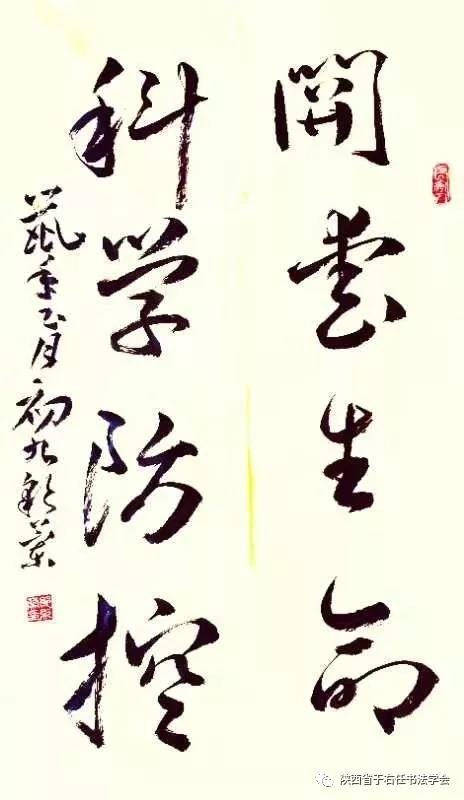 関爱生命
科学防控
鼠年正月初九
陕西省于右任书法学会